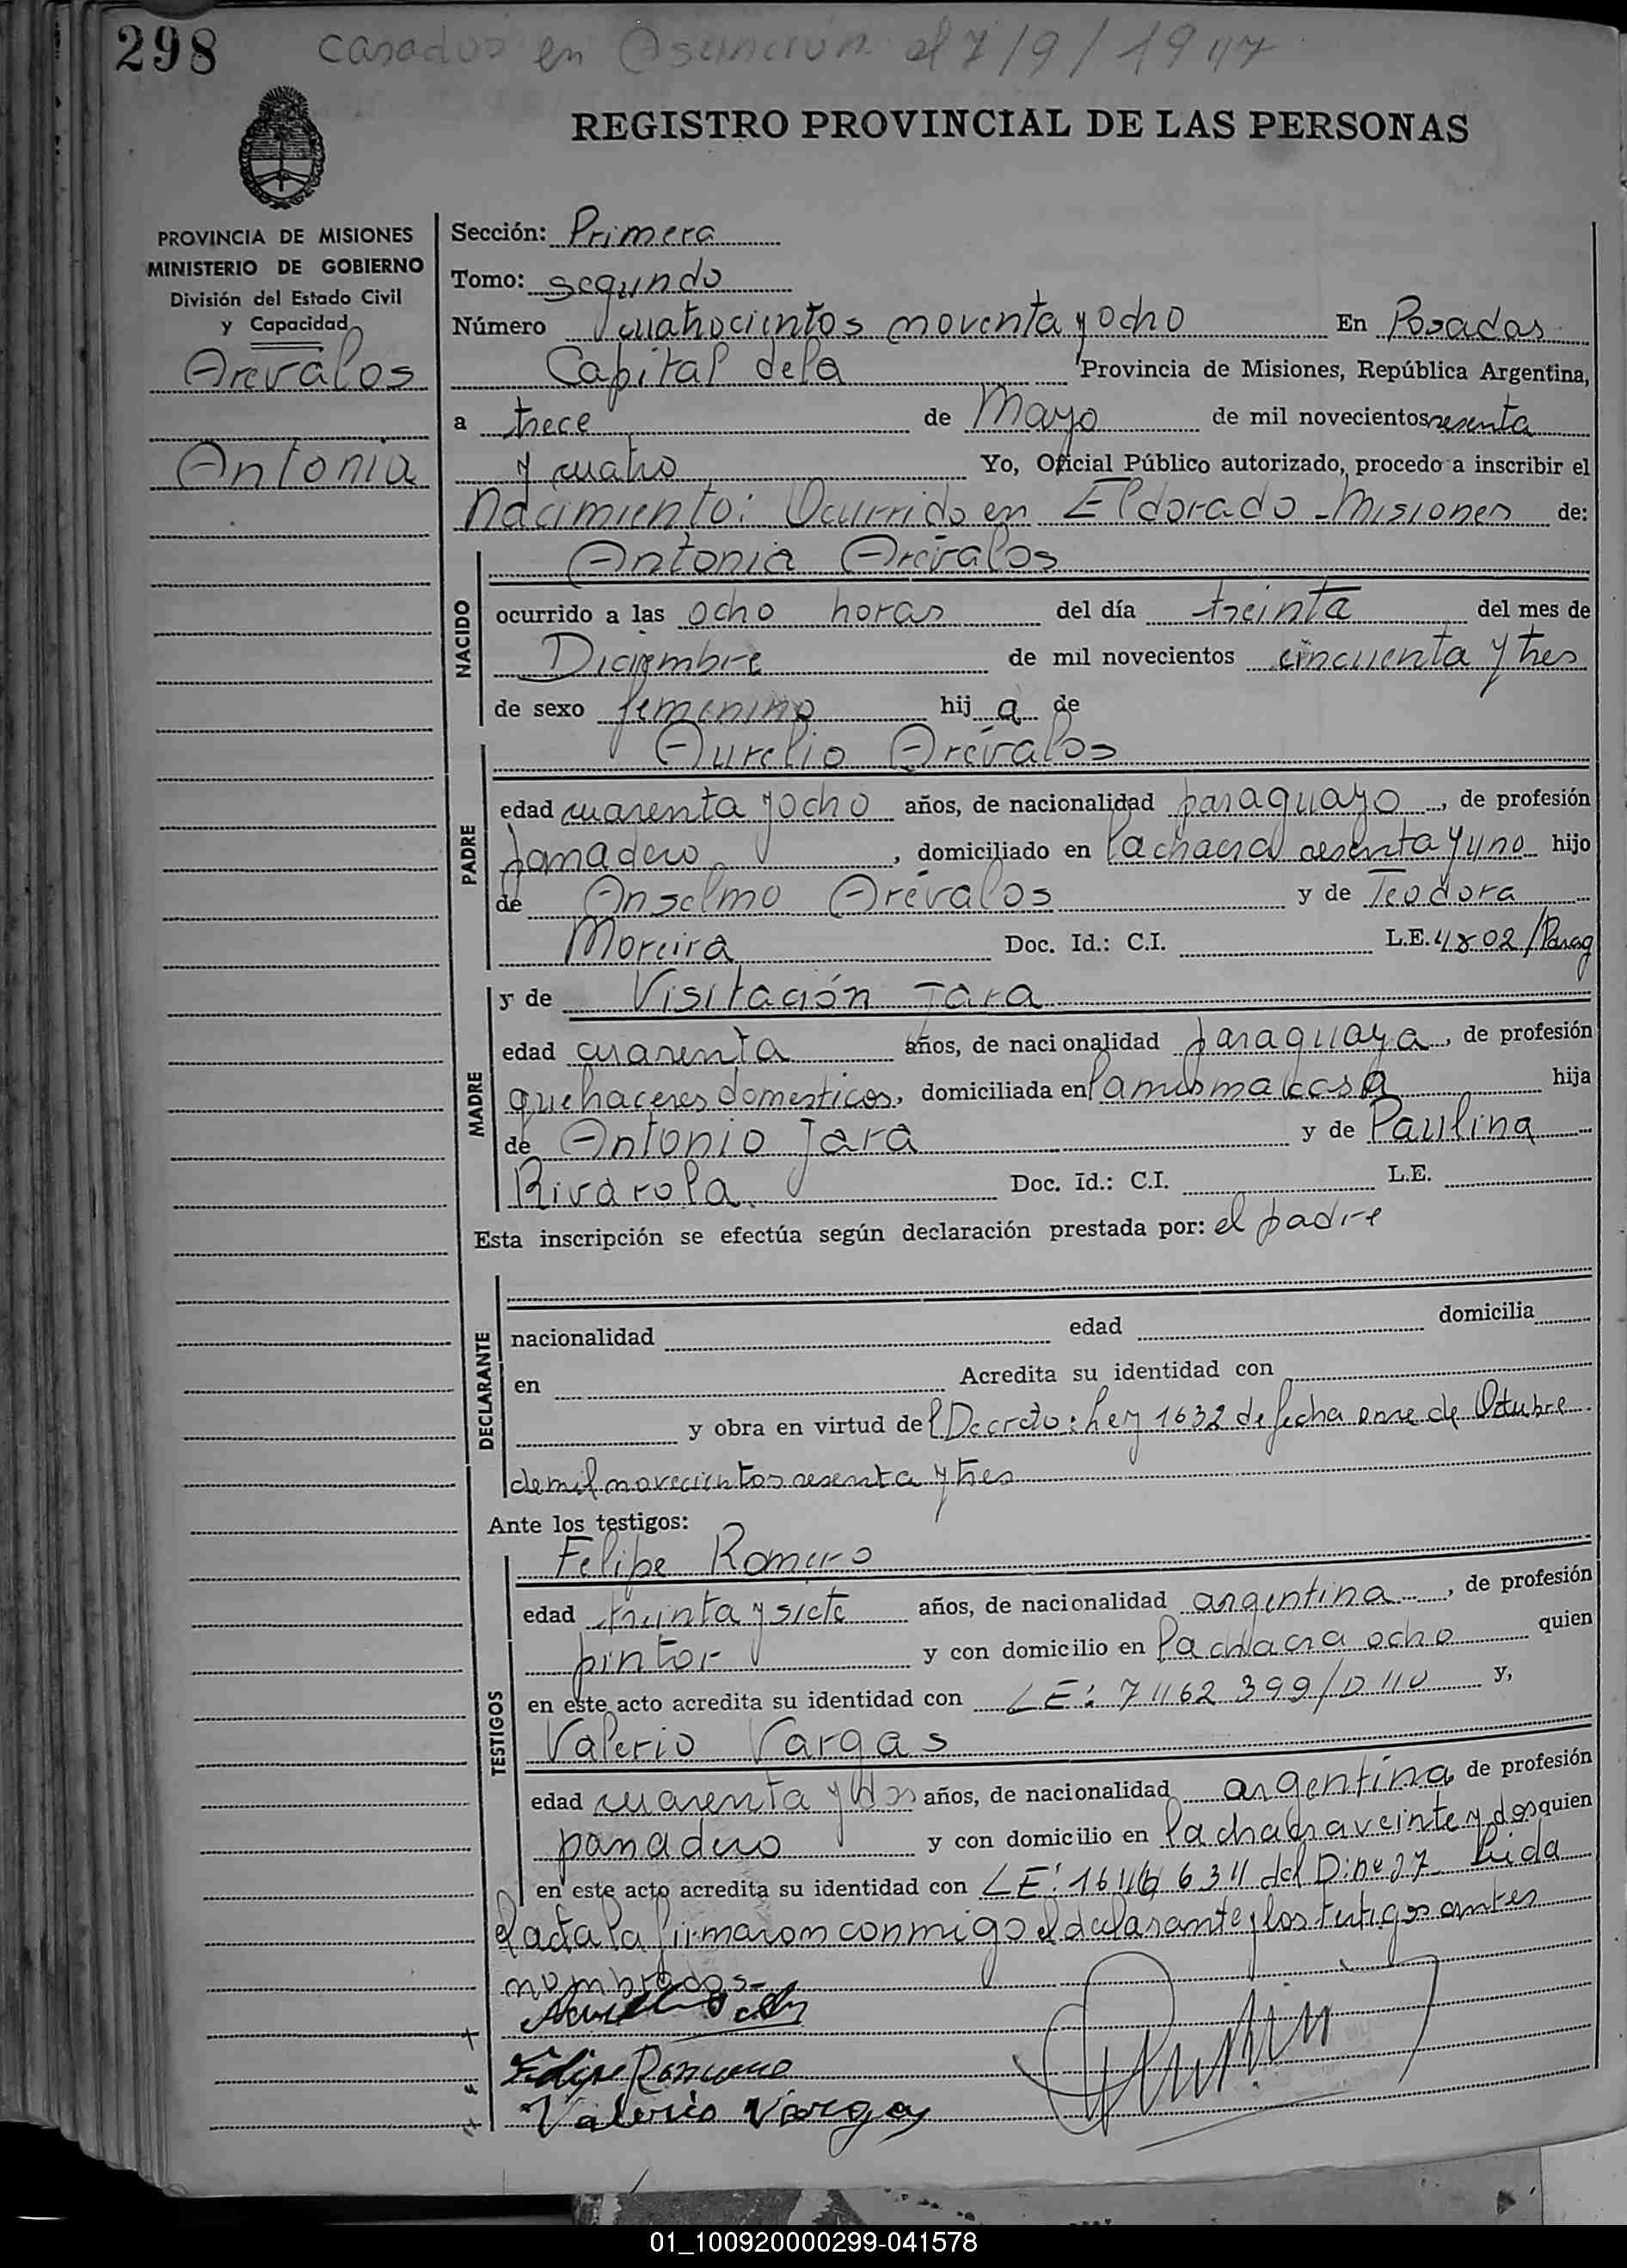 298 casados en Asunción el 7/9/1947
REGISTRO PROVINCIAL DE LAS PERSONAS
PROVINCIA DE MISIONES
MINISTERIO DE GOBIERNO
División del Estado Civil
y Capacidad
Arévalos
Antonia
Sección: Primera
Tomo: segundo
Número cuatrocientos noventa y ocho En Posadas
Capital de la Provincia de Misiones, República Argentina,
a trece de Mayo de mil novecientos sesenta
y cuatro Yo, Oficial Público autorizado, procedo a inscribir el
Nacimiento: Ocurrido en Eldorado - Misiones de:
NACIDO
Antonia Arévalos
ocurrido a las ocho horas del día treinta del mes de
Diciembre de mil novecientos cincuenta y tres
de sexo femenino hij a de
PADRE
Aurelio Arévalos
edad cuarenta y ocho años, de nacionalidad paraguayo, de profesión
panadero, domiciliado en la chacra sesenta y uno hijo
de Anselmo Arévalos y de Teodora
Moreira Doc. Id.: C.I. L.E. 4802/Parag
MADRE
y de Visitación Jara
edad cuarenta años, de nacionalidad paraguaya, de profesión
quehaceres domesticos, domiciliada en la misma casa hija
de Antonio Jara y de Paulina
Rivarola Doc. Id.: C.I. L.E.
Esta inscripción se efectúa según declaración prestada por: el padre
DECLARANTE
nacionalidad edad domicilia
en Acredita su identidad con
y obra en virtud del Decreto: Ley 1632 de fecha once de Octubre
de mil novecientos sesenta y tres
Ante los testigos:
TESTIGOS
Felipe Romero
edad treinta y siete años, de nacionalidad argentina, de profesión
pintor y con domicilio en la chacra ocho quien
en este acto acredita su identidad con LE: 7462399/D 40 y,
Valerio Vargas
edad cuarenta y dos años, de nacionalidad argentina, de profesión
panadero y con domicilio en la chacra veinte y dos quien
en este acto acredita su identidad con LE: del Leida
el acta la firmaron conmigo el declarante y los testigos antes
nombrados-
Felipe Romero
Valerio Vargas
01_100920000299-041578